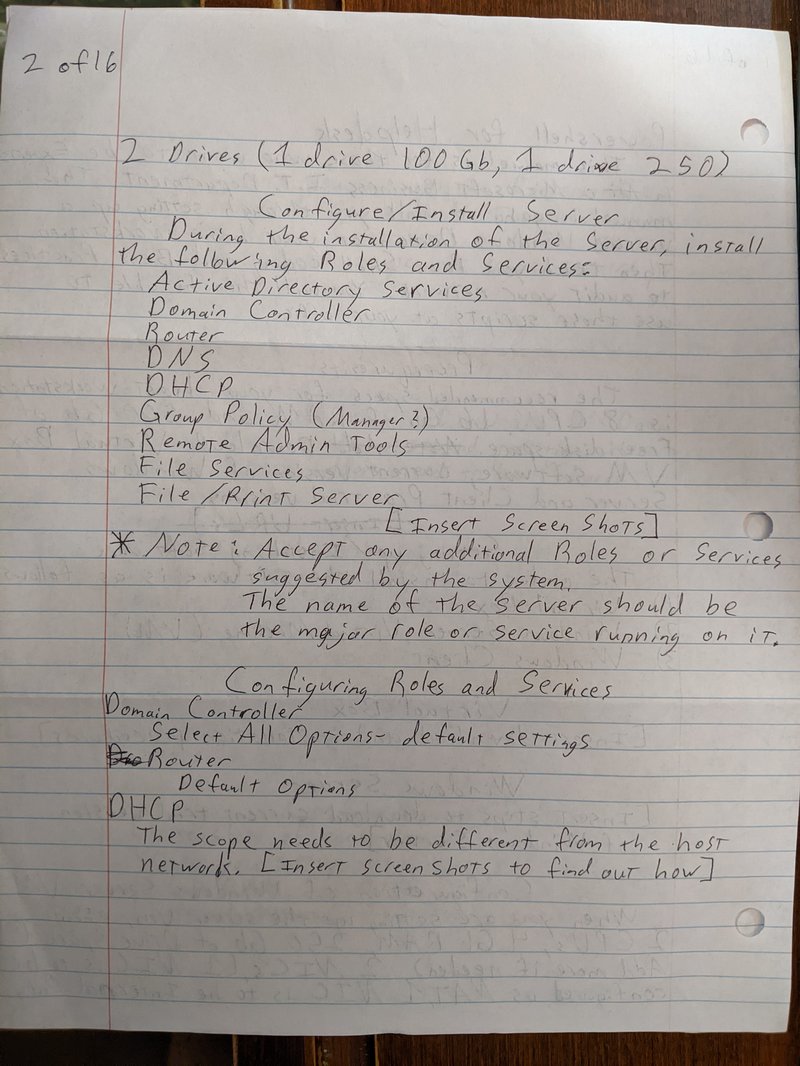 2 of 16
2 Drives (1 drive 100 Gb, 1 drive 250)
Configure/Install Server
During the installation of the Server, install
the following Roles and Services:
Active Directory Services
Domain Controller
Router
DNS
DHCP
Group Policy (Manager?)
Remote Admin Tools
File Services
File/Print Server
[Insert Screen Shots]
* Note: Accept any additional Roles or Services
suggested by the system.
The name of the server should be
the major role or service running on it.
Configuring Roles and Services
Domain Controller
Select All Options- default settings
Router
Default Options
DHCP
The scope needs to be different from the host
network. [Insert screen shots to find out how]